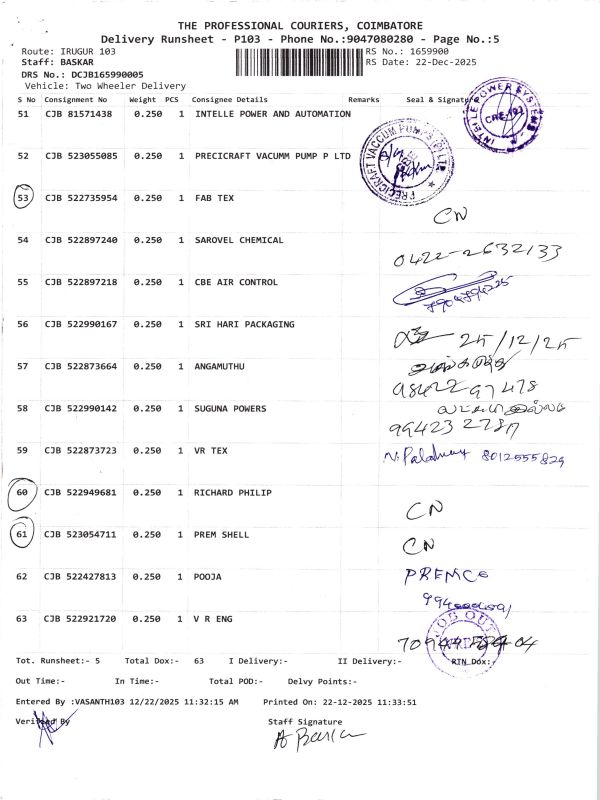 THE PROFESSIONAL COURIERS, COIMBATORE
Delivery Runsheet - P103 - Phone No.:9047080280 - Page No.:5
Route: IRUGUR 103 RS No.: 1659900
Staff: BASKAR RS Date: 22-Dec-2025
DRS No.: DCJB165990005
Vehicle: Two Wheeler Delivery
S No Consignment No Weight PCS Consignee Details Remarks Seal & Signature
51 CJB 81571438 0.250 1 INTELLE POWER AND AUTOMATION
INTELLE POWER SYSTEMS
CBE-103
52 CJB 523055085 0.250 1 PRECICRAFT VACUMM PUMP P LTD
PRECICRAFT VACCUM PUMPS (P) LTD
53 CJB 522735954 0.250 1 FAB TEX
CN
54 CJB 522897240 0.250 1 SAROVEL CHEMICAL
0422-2632133
55 CJB 522897218 0.250 1 CBE AIR CONTROL
56 CJB 522990167 0.250 1 SRI HARI PACKAGING
25/12/25
57 CJB 522873664 0.250 1 ANGAMUTHU
98422 97478
58 CJB 522990142 0.250 1 SUGUNA POWERS
99423 2787
59 CJB 522873723 0.250 1 VR TEX
8012555829
60 CJB 522949681 0.250 1 RICHARD PHILIP
CN
61 CJB 523054711 0.250 1 PREM SHELL
CN
62 CJB 522427813 0.250 1 POOJA
PREMCO
63 CJB 522921720 0.250 1 V R ENG
OUT
Tot. Runsheet:- 5 Total Dox:- 63 I Delivery:- II Delivery:- RTN Dox:-
Out Time:- In Time:- Total POD:- Delvy Points:-
Entered By :VASANTH103 12/22/2025 11:32:15 AM Printed On: 22-12-2025 11:33:51
Verified By Staff Signature